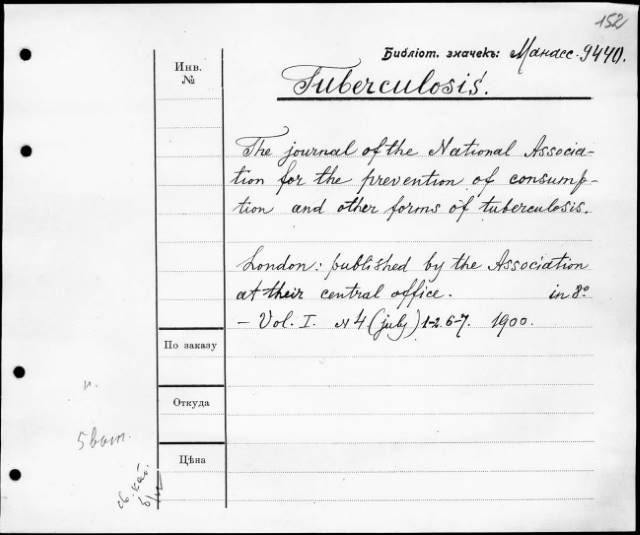 152
Библіот. значекъ: Манасс. 9440.
Инв.
№
Tuberculosis.
The journal of the National Associa-
tion for the prevention of consump-
tion and other forms of tuberculosis.
London: published by the Association
at their central office. in 8°
– Vol. I. N 4 (july) 1-2. 6-7. 1900.
По заказу
Откуда
Цѣна